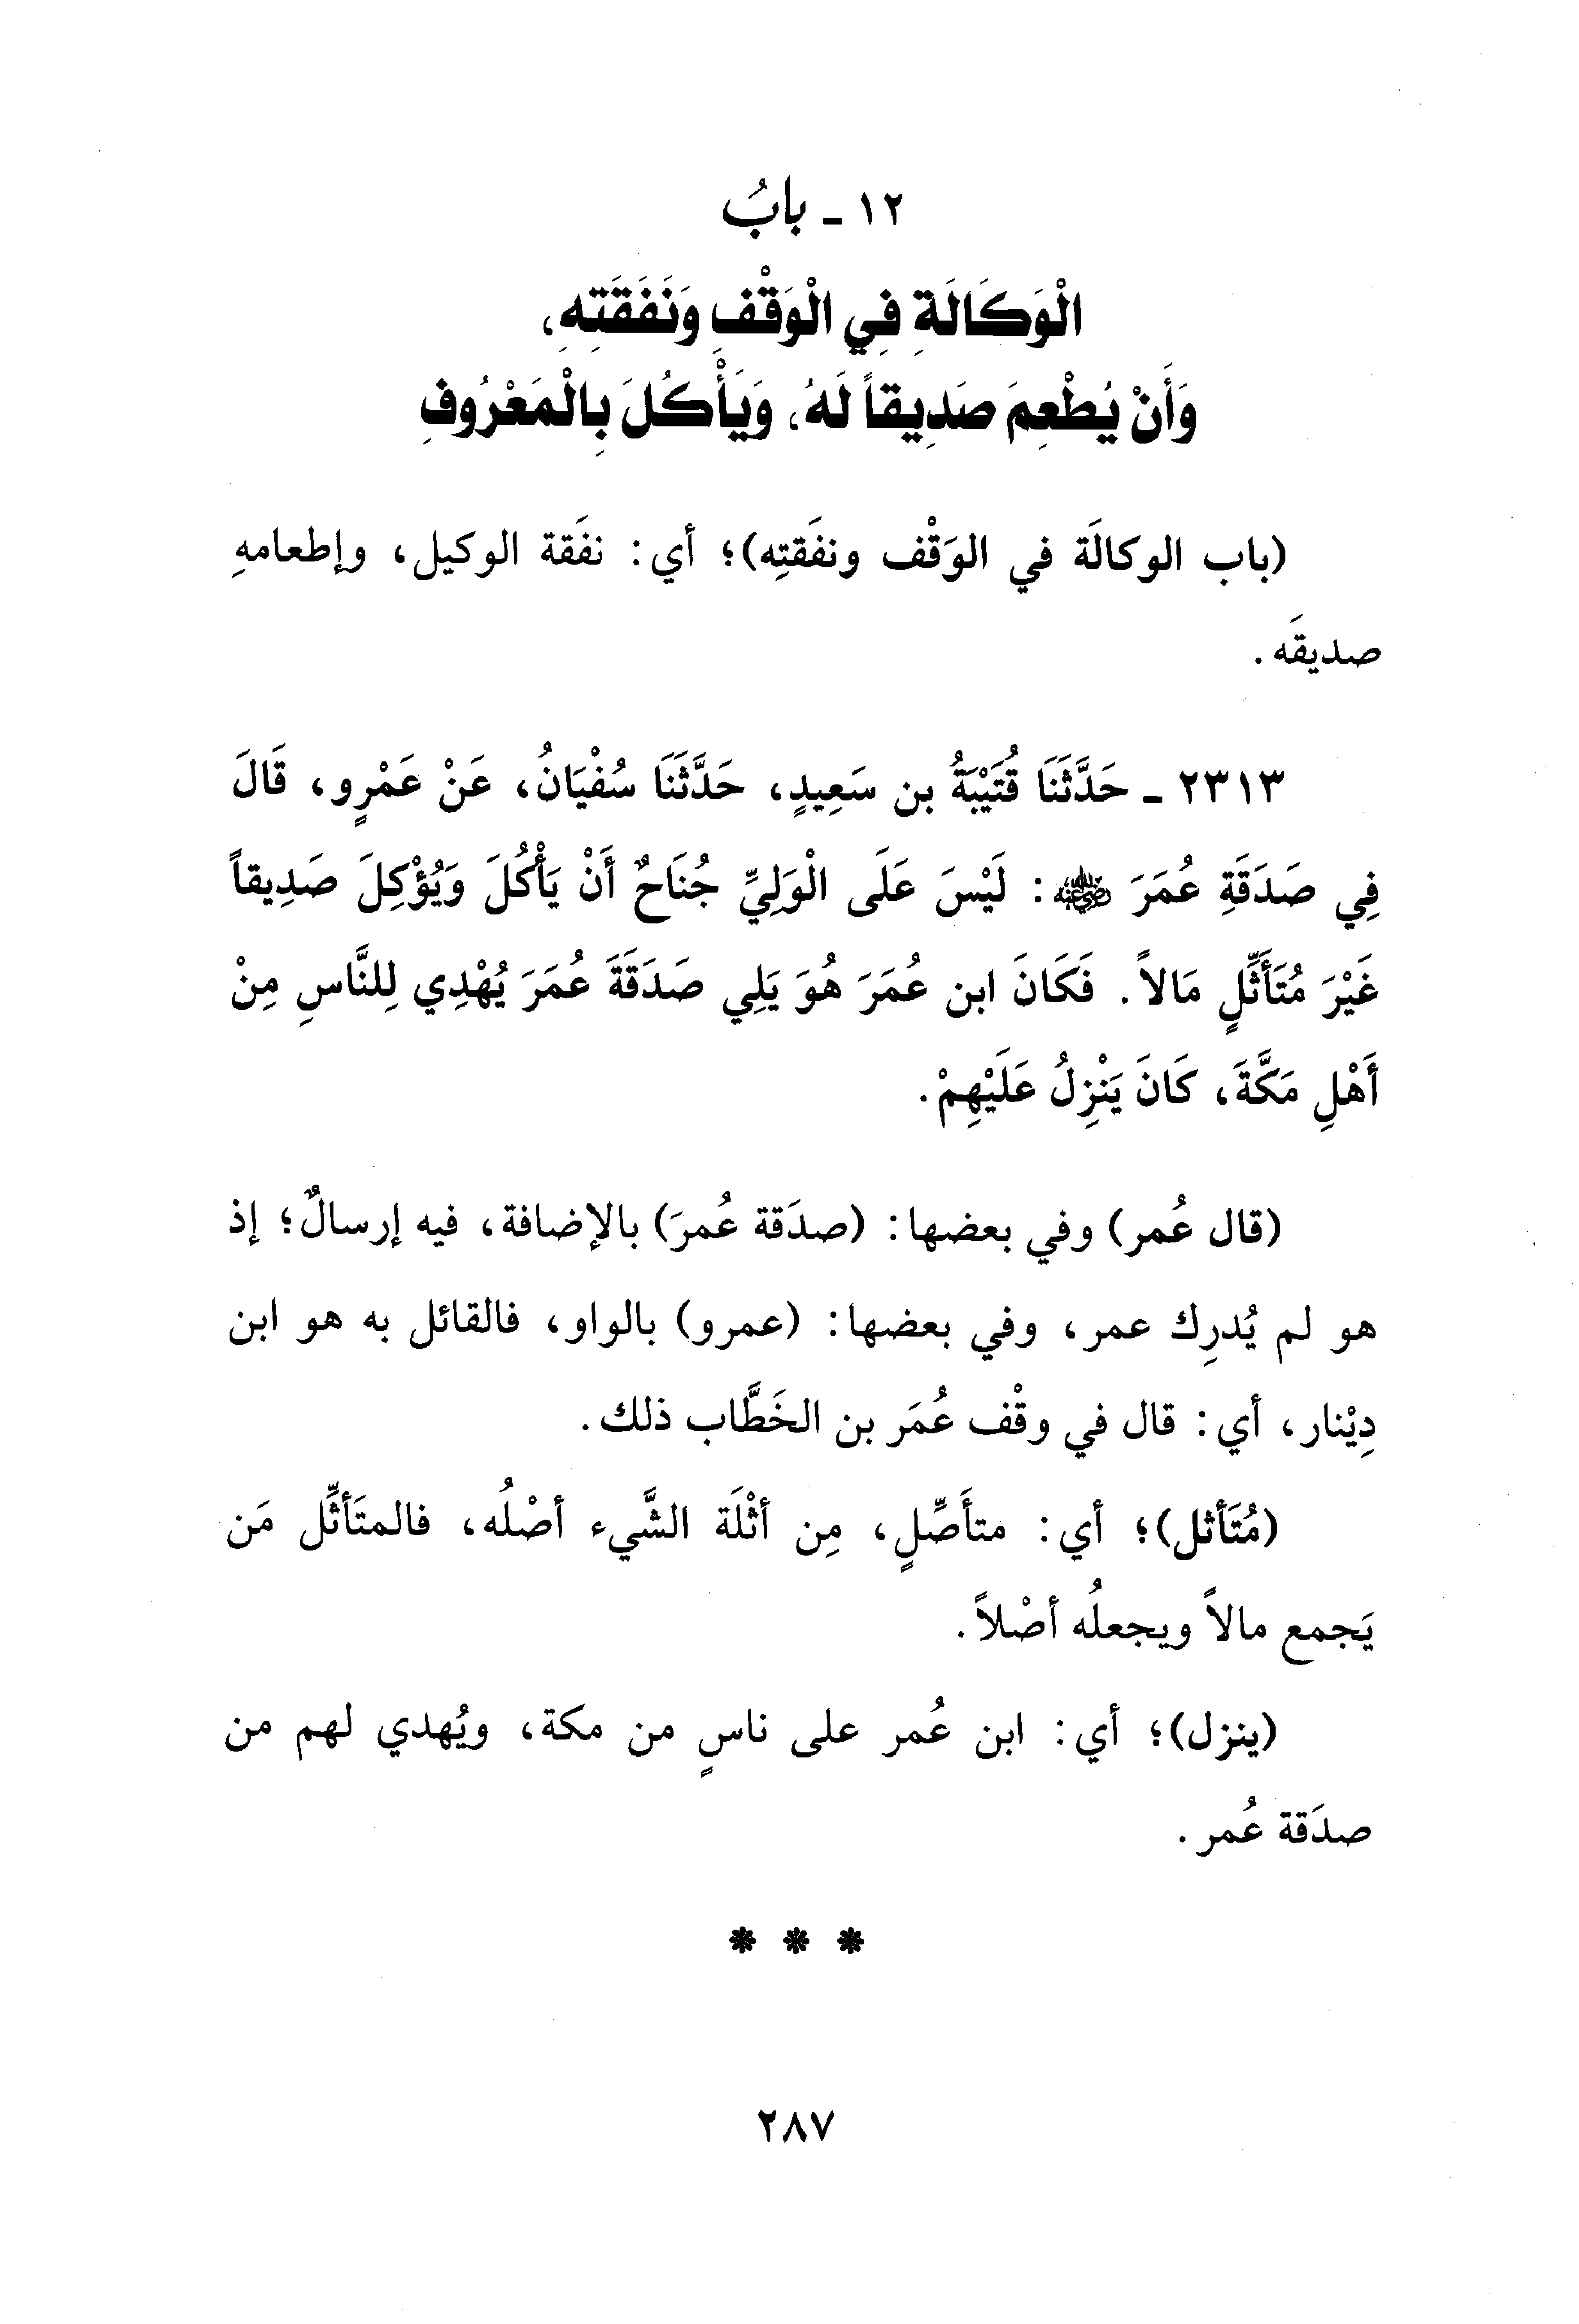 ١٢ ـ بابُ
الْوَكَالَةِ فِي الْوَقْفِ وَنَفَقَتِهِ،
وَأَنْ يُطْعِمَ صَدِيقاً لَهُ، وَيَأْكُلَ بِالْمَعْرُوفِ
(باب الوكالَة في الوَقْف ونفَقتِه)؛ أي: نفَقة الوكيل، وإطعامهِ
صديقَه.
٢٣١٣ ـ حَدَّثَنَا قُتَيْبَةُ بن سَعِيدٍ، حَدَّثَنَا سُفْيَانُ، عَنْ عَمْرٍو، قَالَ
فِي صَدَقَةِ عُمَرَ رضي الله عنه: لَيْسَ عَلَى الْوَلِيِّ جُنَاحٌ أَنْ يَأْكُلَ وَيُؤْكِلَ صَدِيقاً
غَيْرَ مُتَأَثِّلٍ مَالاً. فَكَانَ ابن عُمَرَ هُوَ يَلِي صَدَقَةَ عُمَرَ يُهْدِي لِلنَّاسِ مِنْ
أَهْلِ مَكَّةَ، كَانَ يَنْزِلُ عَلَيْهِمْ.
(قال عُمر) وفي بعضها: (صدَقة عُمرَ) بالإضافة، فيه إرسالٌ؛ إذ
هو لم يُدرِك عمر، وفي بعضها: (عمرو) بالواو، فالقائل به هو ابن
دِيْنار، أي: قال في وقْف عُمَر بن الخَطَّاب ذلك.
(مُتَأثل)؛ أي: متأَصِّلٍ، مِن أثْلَة الشَّيء أصْلُه، فالمتَأثِّل مَن
يَجمع مالاً ويجعلُه أصْلاً.
(ينزل)؛ أي: ابن عُمر على ناسٍ من مكة، ويُهدي لهم من
صدَقة عُمر.
* * *
٢٨٧